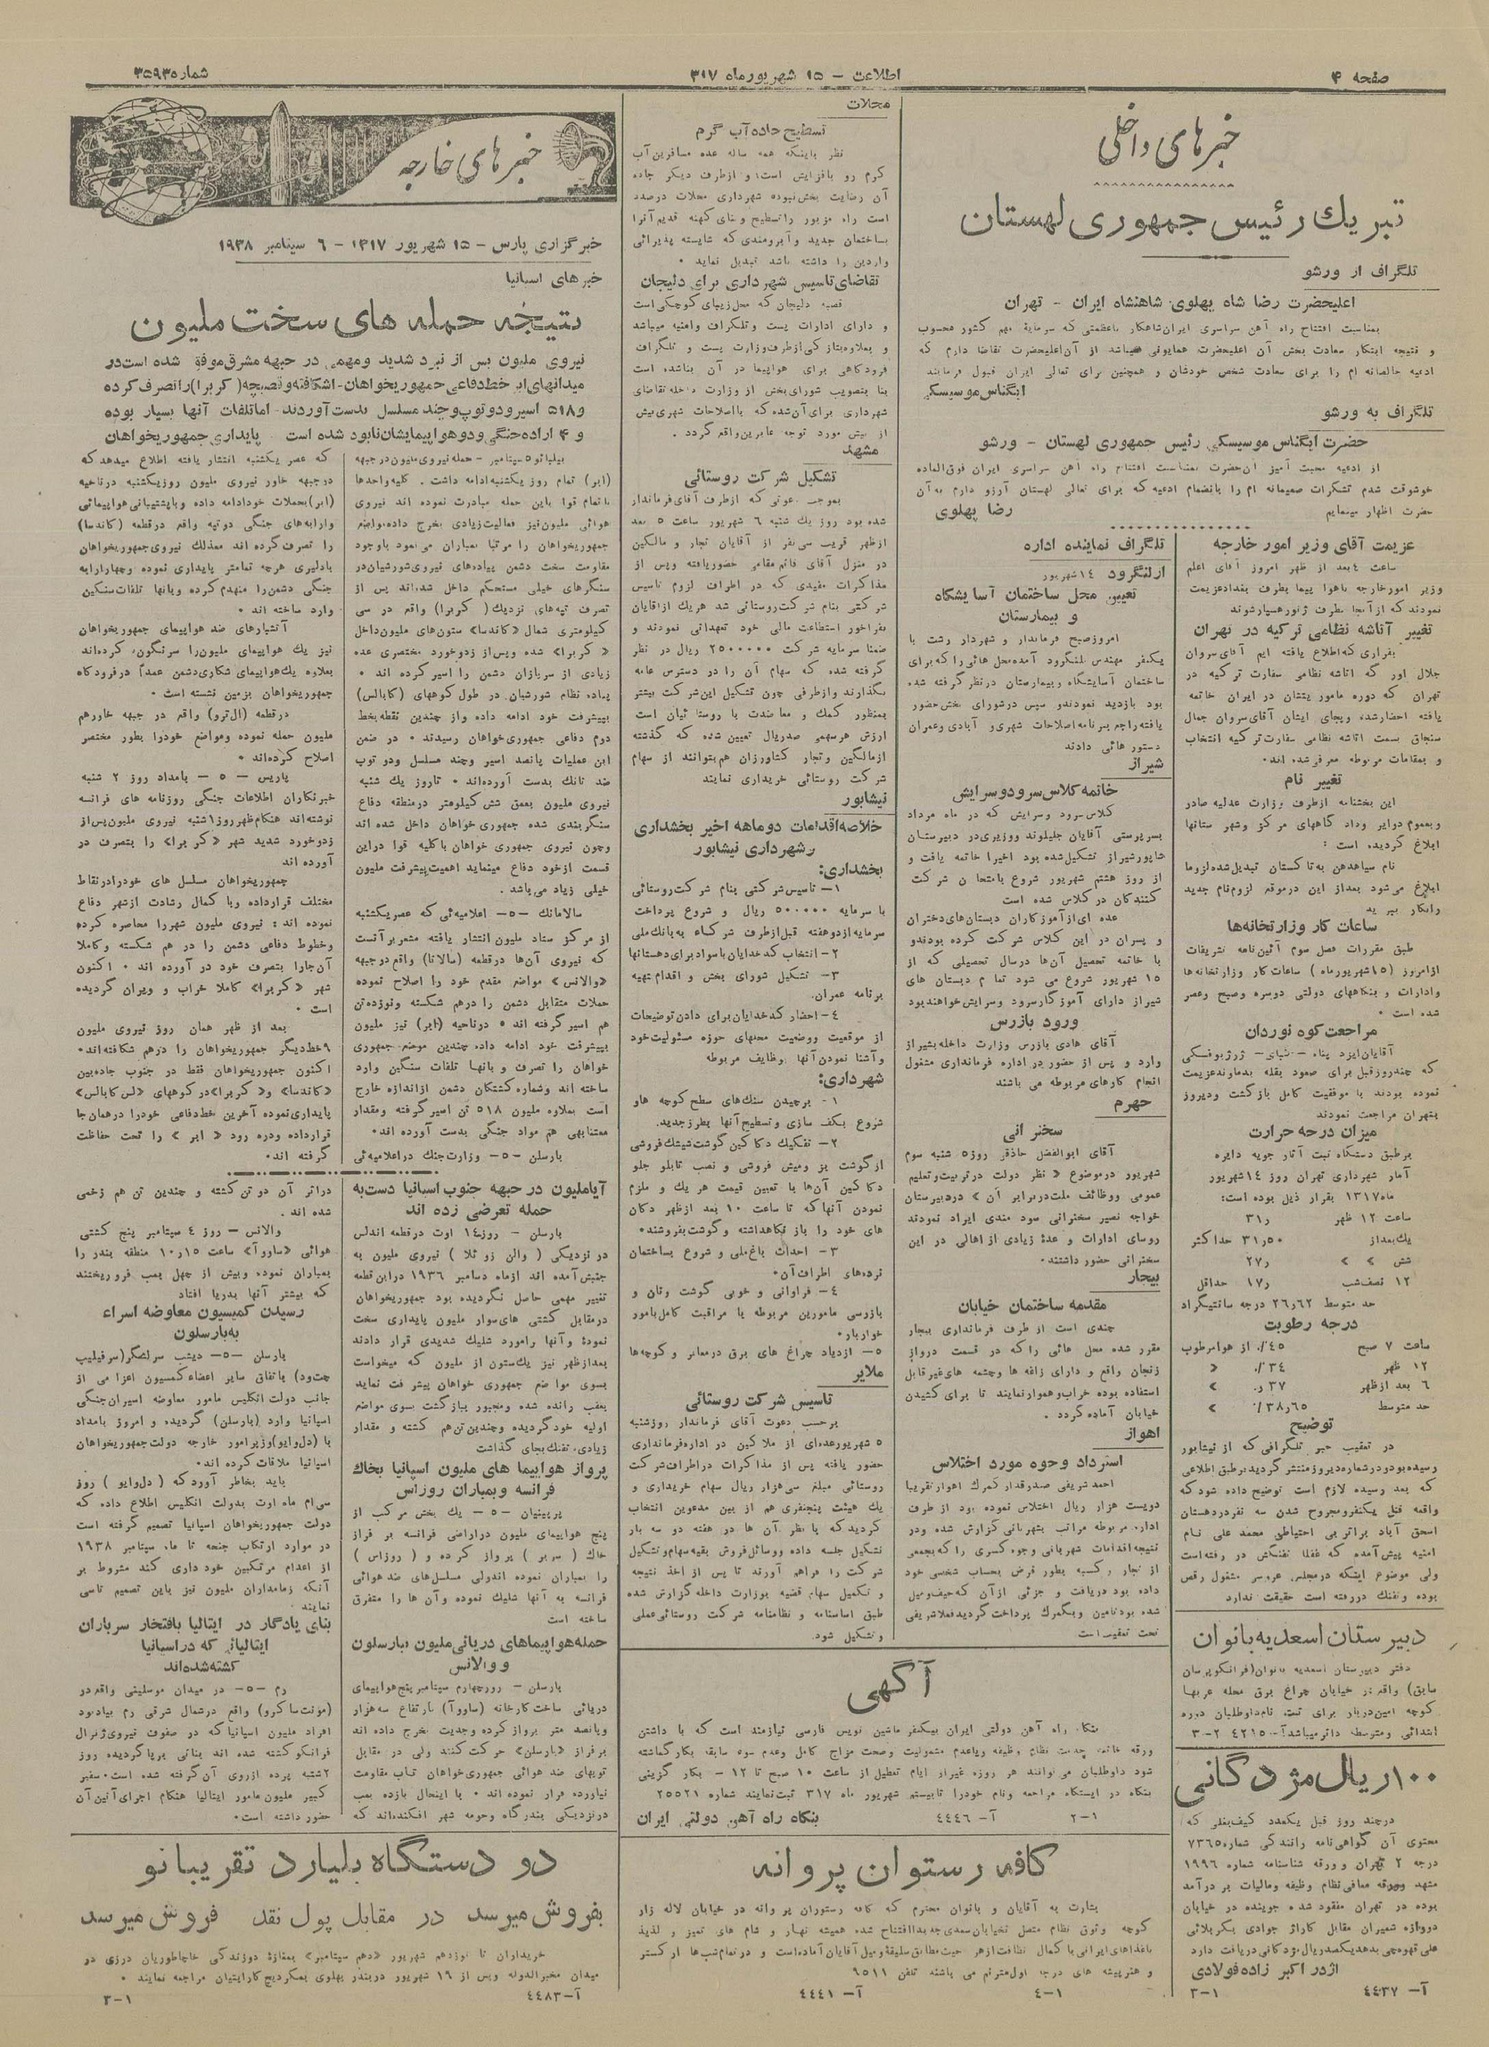 صفحه ۴
اطلاعات - ۱۵ شهریور ماه ۳۱۷
شماره ۳۵۹۳
خبرهای داخلی
تبریك رئیس جمهوری لهستان
تلگراف از ورشو
اعلیحضرت رضا شاه پهلوی شاهنشاه ایران - تهران
بمناسبت افتتاح راه آهن سراسری ایران شاهکار باعظمتی که سرمایهٔ مهم کشور محسوب
و نتیجه ابتکار سعادت بخش آن اعلیحضرت همایونی میباشد از آن اعلیحضرت تقاضا دارم که
ادعیه خالصانه ام را برای سعادت شخص خودشان و همچنین برای تعالی ایران قبول فرمایند
ایگناس موسیسکی
تلگراف به ورشو
حضرت ایگناس موسیسکی رئیس جمهوری لهستان - ورشو
از ادعیه محبت آمیز آن حضرت بمناسبت افتتاح راه آهن سراسری ایران فوق‌الماده
خوشوقت شدم تشکرات صمیمانه ام را بانضمام ادعیه که برای تعالی لهستان آرزو دارم به آن
حضرت اظهار مینمایم
رضا پهلوی
عزیمت آقای وزیر امور خارجه
ساعت ٤ بعد از ظهر امروز آقای اعلم
وزیر امور خارجه باهوا پیما بطرف بغداد عزیمت
نمودند که از آنجا بطرف ژنو رهسپار شوند
تغییر آتاشه نظامی ترکیه در تهران
بقراری که اطلاع یافته ایم آقای سروان
جلال اور که آتاشه نظامی سفارت ترکیه در
تهران که دوره مامور یتشان در ایران خاتمه
یافته احضار شده و بجای ایشان آقای سروان جمال
سنجاق بسمت آتاشه نظامی سفارت ترکیه انتخاب
و بمقامات مربوطه معرفی شده اند.
تغییر نام
این بخشنامه ازطرف وزارت عدلیه صادر
و بعموم دوایر و داد گاههای مرکز و شهر ستانها
ابلاغ گردیده است :
نام سیاهدهن به تاکستان تبدیل شده لزوما
ابلاغ می شود بعد از این درموقع لزوم نام جدید
را بکار ببر ید
ساعات کار وزارتخانه‌ها
طبق مقررات فصل سوم آئین نامه تشریفات
از امروز (۱۵ شهریور ماه) ساعات کار وزارتخانه ها
و ادارات و بنگاههای دولتی دوسره و صبح و عصر
شده است .
مراجعت کوه نوردان
آقایان ایزد پناه - ضیای - ژرژ بوفسکی
که چند روز قبل برای صعود بقله بدماوند عزیمت
نموده بودند با موفقیت کامل بازگشت و دیروز
بتهران مراجعت نمودند
میزان درجه حرارت
برطبق دستگاه ثبت آثار جویه دایره
آمار شهرداری تهران روز ۱٤ شهریور
ماه ۱۳۱۷ بقرار ذیل بوده است:
ساعت ۱۲ ظهر ۳۱ر
یك بعد از ۳۱٫۵۰ حداکثر
شش » » ۲۷ر
۱۲ نصف شب ۱۷ر حداقل
حد متوسط ۲۶٫۶۲ درجه سانتیگراد
درجه رطوبت
ساعت ۷ صبح ٤٥/۰ از هوا مرطوب
۱۲ ظهر ۳٤/۰ «
٦ بعد از ظهر ۳۷ر۰ »
حد متوسط ۳۸٫٦٥/۰ »
توضیح
در تعقیب خبر تلگرافی که از نیشابور
رسیده بود و در شماره دیروز منتشر گردید بر طبق اطلاعی
که بعد رسیده لازم است توضیح داده شود که
واقعه قتل یکنفر و مجروح شدن سه نفر در دهستان
اسحق آباد بر اثر بی احتیاطی محمد علی نام
امنیه پیش آمده که غفلتا تفنگش در رفته است
ولی موضوع اینکه در مجلس عروسی مشغول رقص
بوده و تفنگ در رفته است حقیقت ندارد
دبیرستان اسعدیه بانوان
دفتر دبیرستان اسعدیه بانوان (فرانکو پرسان
سابق) واقعه در خیابان چراغ برق محله عربها
کوچه امین دربار برای ثبت نام داوطلبان دوره
ابتدائی و متوسطه دائر میباشد آ-٤۲۱٥ ۲-۳
۱۰۰ ریال مژدگانی
در چند روز قبل یکعدد کیف بغلی که
محتوی آن گواهی نامه رانندگی شماره ۷۳٦٥
درجه ۲ تهران و ورقه شناسنامه شماره ۱۹۹٦
مشهد و ورقه معافی نظام وظیفه و مالیات بر درآمد
بوده در تهران مفقود شده جوینده در خیابان
دروازه شمیران مقابل کاراژ جوادی بکر بلائی
علی قهوه‌چی بدهد یکصد ریال مژدگانی دریافت دارد
اژدر اکبر زاده فولادی
آ- ٤٤۳۷ ۱-۳
تلگراف نماینده اداره
از لنگرود ۱٤ شهریور
تعیین محل ساختمان آسایشگاه
و بیمارستان
امروز صبح فرماندار و شهردار رشت با
یکنفر مهندس بلنگرود آمده محل هائی را که برای
ساختمان آسایشگاه و بیمارستان در نظر گرفته شده
بود بازدید نمودند و سپس در شورای بخش حضور
یافته راجع ببرنامه اصلاحات شهری و آبادی و عمران
دستور هائی دادند
شیراز
خاتمه کلاس سرود و سرایش
کلاس سرود و سرایش که در ماه مرداد
بسرپرستی آقایان جلیلوند و وزیری در دبیرستان
شاپور شیراز تشکیل شده بود اخیرا خاتمه یافت و
از روز هشتم شهریور شروع بامتحا ن شرکت
کنندگان در کلاس شده است
عده ای از آموزگاران دبستان های دختران
و پسران در این کلاس شرکت کرده بودند و
با خاتمه تحصیل آن ها در سال تحصیلی که از
۱۵ شهریور شروع می شود تمام دبستان های
شیراز دارای آموزگار سرود و سرایش خواهند بود
ورود بازرس
آقای هادی بازرس وزارت داخله بشیراز
وارد و پس از حضور در اداره فرمانداری مشغول
انجام کارهای مربوطه می باشند
جهرم
سخنر انی
آقای ابوالفضل حاذقی روز ٥ شنبه سوم
شهریور درموضوع « نظر دولت در تربیت و تعلیم
عمومی و وظائف ملت در برابر آن » در دبیرستان
خواجه نصیر سخنرانی سود مندی ایراد نمودند
روسای ادارات و عدهٔ زیادی از اهالی در این
سخنرانی حضور داشتند.
بیجار
مقدمه ساختمان خیابان
چندی است از طرف فرمانداری بیجار
مقرر شده محل هائی را که در قسمت دروازه
زنجان واقع و دارای زاغه ها و چشمه های غیر قابل
استفاده بوده خراب و هموار نمایند تا برای کشیدن
خیابان آماده گردد .
اهواز
استرداد وجوه مورد اختلاس
احمد شریفی صندوقدار کمرك اهواز تقریبا
دویست هزار ریال اختلاس نموده بود از طرف
اداره مربوطه مراتب بشهربانی گزارش شده و در
نتیجه اقدامات شهربانی وجوه کسری را که بجمعی
از تجار و کسبه بطور قرض بحساب شخصی خود
داده بود دریافت و جزئی از آن که حیف و میل
شده بود تامین و بگمرك پرداخت گردید فعلا شریفی
تحت تعقیب است
محلات
تسطیح جاده آب گرم
نظر باینکه همه ساله عده مسافرین آب
گرم رو بافزایش است و از طرف دیگر جاده
آن رضایت بخش نبوده شهرداری محلات درصدد
است راه مزبور را تسطیح و بنای کهنه قدیم آنرا
بساختمان جدید و آبرومندی که شایسته پذیرائی
واردین را داشته باشد تبدیل نماید .
تقاضای تاسیس شهرداری برای دلیجان
قصبه دلیجان که محل زیبای کوچکی است
و دارای ادارات پست و تلگراف و امنیه میباشد
و بعلاوه بتازگی از طرف وزارت پست و تلگراف
فرودگاهی برای هواپیما در آن بنا شده است
بنا بتصویب شورای بخش از وزارت داخله تقاضای
شهرداری برای آن شده که با اصلاحات شهری بیش
از پیش مورد توجه عابرین واقع گردد .
مشهد
تشکیل شرکت روستائی
بموجب دعوتی که از طرف آقای فرماندار
شده بود روز یك شنبه ٦ شهریور ساعت ٥ بعد
از ظهر قریب سی نفر از آقایان تجار و مالکین
در منزل آقای قائم مقامی حضور یافته و پس از
مذاکرات مفیدی که در اطراف لزوم تاسیس
شرکتی بنام شرکت روستائی شد هریك از آقایان
بفراخور استطاعت مالی خود تعهداتی نمودند و
ضمنا سرمایه شرکت ۲۵۰۰۰۰۰ ریال در نظر
گرفته شده که سهام آن را در دسترس عامه
بگذارند و از طرفی چون تشکیل این شرکت بیشتر
بمنظور کمك و معاضدت با روستا ئیان است
ارزش هر سهمی صدریال تعیین شده که گذشته
از مالکین و تجار کشاورزان هم بتوانند از سهام
شرکت روستائی خریداری نمایند
نیشابور
خلاصه اقدامات دو ماهه اخیر بخشداری
و شهرداری نیشابور
بخشداری:
۱- تاسیس شرکتی بنام شرکت روستائی
با سرمایه ۵۰۰۰۰۰ ریال و شروع پرداخت
سرمایه از دو هفته قبل از طرف شرکاء به بانك ملی
۲- انتخاب کدخدایان باسواد برای دهستانها
۳- تشکیل شورای بخش و اقدام تهیه
برنامه عمران.
٤- احضار کدخدایان برای دادن توضیحات
از موقعیت و وضعیت محلهای حوزه مسئولیت خود
و آشنا نمودن آنها بوظایف مربوطه
شهرداری:
۱- برچیدن سنك‌های سطح کوچه ها و
شروع بکف سازی و تسطیح آنها بطرز جدید.
۲- تفکیك دکاکین گوشت شیشك فروشی
از گوشت بز و میش فروشی و نصب تابلو جلو
دکاکین آن‌ها با تعیین قیمت هر یك و ملزم
نمودن آنها که تا ساعت ۱۰ بعد از ظهر دکان
های خود را باز نگاهداشته و گوشت بفروشند.
۳- احداث باغ ملی و شروع بساختمان
نرده‌های اطراف آن.
٤- فراوانی و خوبی گوشت و نان و
بازرسی مامورین مربوطه با مراقبت کامل بامور
خواربار.
٥- ازدیاد چراغ های برق در معابر و کوچه‌ها
ملایر
تاسیس شرکت روستائی
برحسب دعوت آقای فرماندار روز شنبه
٥ شهریور عده‌ای از ملاکین در اداره فرمانداری
حضور یافته پس از مذاکرات در اطراف شرکت
روستائی مبلغ سی هزار ریال سهام خریداری و
یك هیئت پنجنفری هم از بین مدعوین انتخاب
گردید که با نظر آن ها در هفته دو سه بار
تشکیل جلسه داده و وسائل فروش بقیه سهام و تشکیل
شرکت را فراهم آورند تا پس از اخذ نتیجه
و تکمیل سهام قضیه بوزارت داخله گزارش شده
طبق اساسنامه و نظامنامه شرکت روستائی عملی
و تشکیل شود.
آگهی
بنگاه راه آهن دولتی ایران بیکنفر ماشین نویس فارسی نیازمند است که با داشتن
ورقه خاتمه خدمت نظام وظیفه یا عدم مشمولیت و صحت مزاج کامل و عدم سوء سابقه بکار گماشته
شود داوطلبان می توانند هر روزه غیر از ایام تعطیل از ساعت ۱۰ صبح تا ۱۲ - بکار گزینی
بنگاه در ایستگاه مراجعه و نام خود را تا بیستم شهریور ماه ۳۱۷ ثبت نمایند شماره ۲٥٥۲۱
۱-۲ آ-٤٤٤٦ بنگاه راه آهن دولتی ایران
کافه رستوان پروانه
بشارت به آقایان و بانوان محترم که کافه رستوران پروانه در خیابان لاله زار
کوچه وثوق نظام متصل بخیابان سعدی جدیدا افتتاح شده همیشه نهار و شام های تمیز و لذیذ
باغذاهای ایرانی با کمال نظافت از هر حیث مطابق سلیقه و میل آقایان آماده است و در تمام شبها ارکستر
و هنرپیشه های درجه اول مترنم می باشند تلفن ۹۵۱۱
۱-٤ آ- ٤٤٤۱
خبرهای خارجه
خبرگزاری پارس - ۱۵ شهریور ۱۳۱۷ - ۶ سپتامبر ۱۹۳۸
خبرهای اسپانیا
نتیجه حمله های سخت ملیون
نیروی ملیون پس از نبرد شدید و مهمی در جبهه مشرق موفق شده است در
میدانهای ابر خط دفاعی جمهوریخواهان را شکافته و قصبچه (کربرا) را تصرف کرده
و ۵۱۸ اسیر و دو توپ و چند مسلسل بدست آوردند. اما تلفات آنها بسیار بوده
و ۴ ارادهٔ جنگی و دو هواپیمایشان نابود شده است پایداری جمهوریخواهان
بیلبائو ٥ سپتامبر - حمله نیروی ملیون در جبهه
(ابر) تمام روز یکشنبه ادامه داشت . کلیه واحدها
با تمام قوا باین حمله مبادرت نموده اند نیروی
هوائی ملیون نیز فعالیت زیادی بخرج داده مواضع
جمهوریخواهان را مرتبا بمباران می نمود با وجود
مقاومت سخت دشمن پیاده‌های نیروی شورشیان در
سنگرهای خیلی مستحکم داخل شده اند پس از
تصرف تپه‌های نزدیك (کربرا) واقع در سی
کیلومتری شمال «کاندسا» ستون‌های ملیون داخل
« کربرا» شده و پس از زد و خورد مختصری عده
زیادی از سربازان دشمن را اسیر کرده اند .
پیاده نظام شورشیان در طول کوههای (کابالس)
بپیشرفت خود ادامه داده و از چندین نقطه بخط
دوم دفاعی جمهوری خواهان رسیدند . در ضمن
این عملیات پانصد اسیر و چند مسلسل و دو توپ
ضد تانك بدست آورده اند . تا روز یك شنبه
نیروی ملیون بعمق شش کیلومتر در منطقه دفاع
سنگربندی شده جمهوری خواهان داخل شده اند
و چون نیروی جمهوری خواهان با کلیه قوا در این
قسمت از خود دفاع مینماید اهمیت پیشرفت ملیون
خیلی زیاد می باشد .
سالامانك -٥- اعلامیه‌ئی که عصر یکشنبه
از مرکز ستاد ملیون انتشار یافته مشعر بر آنست
که نیروی آن‌ها در قطعه (مالانا) واقع در جبهه
«والانس» مواضع مقدم خود را اصلاح نموده
حملات متقابل دشمن را درهم شکسته و نوزده تن
هم اسیر گرفته اند . در ناحیه (ابر) نیز ملیون
بپیشرفت خود ادامه داده چندین موضع جمهوری
خواهان را تصرف و بآنها تلفات سنگین وارد
ساخته اند و شماره کشتگان دشمن از اندازه خارج
است بعلاوه ملیون ۵۱۸ تن اسیر گرفته و مقدار
معتنابهی هم مواد جنگی بدست آورده اند.
بارسلن -٥- وزارت جنك در اعلامیه‌ئی
که عصر یکشنبه انتشار یافته اطلاع میدهد که
در جبهه خاور نیروی ملیون روز یکشنبه در ناحیه
(ابر) بحملات خود ادامه داده و با پشتیبانی هواپیمائی
و ارابه‌های جنگی دو تپه واقع در قطعه (کاندسا)
را تصرف کرده اند معذلك نیروی جمهوریخواهان
با دلیری هرچه تمامتر پایداری نموده و چهار ارابه
جنگی دشمن را منهدم کرده و بآنها تلفات سنگین
وارد ساخته اند .
آتشبارهای ضد هواپیمای جمهوریخواهان
نیز یك هواپیمای ملیون را سرنگون کرده‌اند
بعلاوه یك هواپیمای شکاری دشمن عمداً در فرودگاه
جمهوریخواهان بزمین نشسته است .
در قطعه (ال‌ترو) واقع در جبهه خاور هم
ملیون حمله نموده و مواضع خود را بطور مختصر
اصلاح کرده‌اند .
پاریس -٥- بامداد روز ۲ شنبه
خبرنگاران اطلاعات جنگی روزنامه های فرانسه
نوشته‌اند هنگام ظهر روز ۱ شنبه نیروی ملیون پس از
زد و خورد شدید شهر «کربرا» را بتصرف در
آورده اند
جمهوریخواهان مسلسل های خود را در نقاط
مختلف قرارداده و با کمال رشادت از شهر دفاع
نموده اند : نیروی ملیون شهر را محاصره کرده
و خطوط دفاعی دشمن را در هم شکسته و کاملا
آن‌جا را بتصرف خود در آورده اند . اکنون
شهر «کربرا» کاملا خراب و ویران گردیده
است .
بعد از ظهر همان روز نیروی ملیون
۹ خط دیگر جمهوریخواهان را درهم شکافته اند.
اکنون جمهوریخواهان فقط در جنوب جاده بین
«کاندسا» و «کربرا» در کوههای «لس کابالس»
پایداری نموده آخرین خط دفاعی خود را در همان جا
قرار داده و دره رود « ابر » را تحت حفاظت
گرفته اند.
آیا ملیون در جبهه جنوب اسپانیا دست به
حمله تعرضی زده اند
بارسلن - روز ۱٤ اوت در قطعه اندلس
در نزدیکی ( والن زو ئلا ) نیروی ملیون به
جنبش آمده اند از ماه دسامبر ۱۹۳٦ در این قطعه
تغییر مهمی حاصل نگردیده بود جمهوریخواهان
در مقابل کشتی های سوار ملیون پایداری سخت
نموده و آنها را مورد شلیك شدیدی قرار دادند
بعد از ظهر نیز یك ستون از ملیون که میخواست
بسوی مواضع جمهوری خواهان پیشرفت نماید
بعقب رانده شده و مجبور ببازگشت بسوی مواضع
اولیه خود گردیده و چندین تن هم کشته و مقدار
زیادی تفنك بجای گذاشت
پرواز هواپیما های ملیون اسپانیا بخاك
فرانسه و بمباران روزاس
پرپینیان -٥- یك بخش مرکب از
پنج هواپیمای ملیون در اراضی فرانسه بر فراز
خاك ( سربر ) پرواز کرده و ( روزاس )
را بمباران نموده اند ولی مسلسل‌های ضد هوائی
فرانسه به آنها شلیك نموده و آن ها را متفرق
ساخته است
حمله هواپیماهای دریائی ملیون ببارسلون
و والانس
بارسلن - روز چهارم سپتامبر پنج هواپیمای
دریائی ساخت کارخانه (ساووآ) بارتفاع سه هزار
و پانصد متر پرواز کرده و جدیت بخرج داده اند
بر فراز «بارسلن» حرکت کنند ولی در مقابل
توپهای ضد هوائی جمهوری‌خواهان تاب مقاومت
نیاورده فرار نموده اند . با اینحال یازده بمب
در نزدیکی بندرگاه و حومه شهر افکنده‌اند که
در اثر آن دو تن کشته و چندین تن هم زخمی
شده اند .
والانس - روز ٤ سپتامبر پنج کشتی
هوائی «ساووآ» ساعت ۱۰٫۱۵ منطقه بندر را
بمباران نموده و بیش از چهل بمب فرو ریختند
که بیشتر آنها بدریا افتاد
رسیدن کمیسیون معاوضه اسراء
به بارسلون
بارسلن -٥- دیشب سرلشگر (سرفیلیپ
چت‌ود) باتفاق سایر اعضاء کمسیون اعزامی از
جانب دولت انگلیس مامور معاوضه اسیران جنگی
اسپانیا وارد (بارسلن) گردیده و امروز بامداد
با (دل‌وایو) وزیر امور خارجه دولت جمهوریخواهان
اسپانیا ملاقات کرده اند.
باید بخاطر آورد که (دل‌وایو) روز
سی‌ام ماه اوت بدولت انگلیس اطلاع داده که
دولت جمهوریخواهان اسپانیا تصمیم گرفته است
در موارد ارتکاب جنحه تا ماه سپتامبر ۱۹۳۸
از اعدام مرتکبین خود داری کند مشروط بر
آنکه زمامداران ملیون نیز باین تصمیم تاسی
نمایند
بنای یادگار در ایتالیا بافتخار سربازان
ایتالیائی که در اسپانیا
کشته شده‌اند
رم -٥- در میدان موسلینی واقعه در
(مونت ساکرو) واقع در شمال شرقی رم بیادبود
افراد ملیون اسپانیا که در صفوف نیروی ژنرال
فرانکو کشته شده اند بنائی برپا گردیده روز
۲ شنبه پرده از روی آن گرفته شده است . سفیر
کبیر ملیون مامور ایتالیا هنگام اجرای آئین آن
حضور داشته است .
دو دستگاه بلیارد تقریبا نو
بفروش میرسد در مقابل پول نقد فروش میرسد
خریداران تا نوزدهم شهریور «دهم سپتامبر» بمغازهٔ دوزندگی خاچاطوریان درزی در
میدان مخبرالدوله و پس از ۱٦ شهریور در بندر پهلوی بمکردیچ کاراپتیان مراجعه نمایند .
آ-٤٤۸۳ ۱-۳